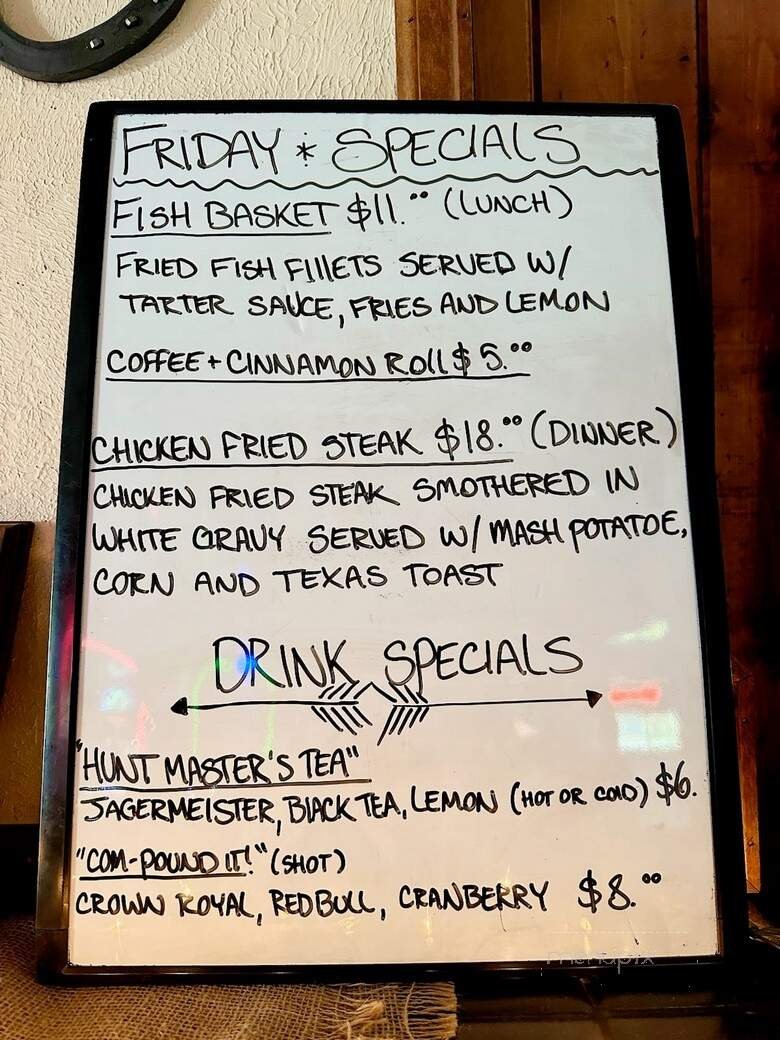 FRIDAY * SPECIALS
FISH BASKET $11.00 (LUNCH)
FRIED FISH FILLETS SERVED W/
TARTER SAUCE, FRIES AND LEMON
COFFEE + CINNAMON ROLL $5.00
CHICKEN FRIED STEAK $18.00 (DINNER)
CHICKEN FRIED STEAK SMOTHERED IN
WHITE GRAVY SERVED W/ MASH POTATOE,
CORN AND TEXAS TOAST
DRINK SPECIALS
"HUNT MASTER'S TEA"
JAGERMEISTER, BLACK TEA, LEMON (HOT OR COLD) $6.
"COM-POUND IT!" (SHOT)
CROWN ROYAL, RED BULL, CRANBERRY $8.00
menupix